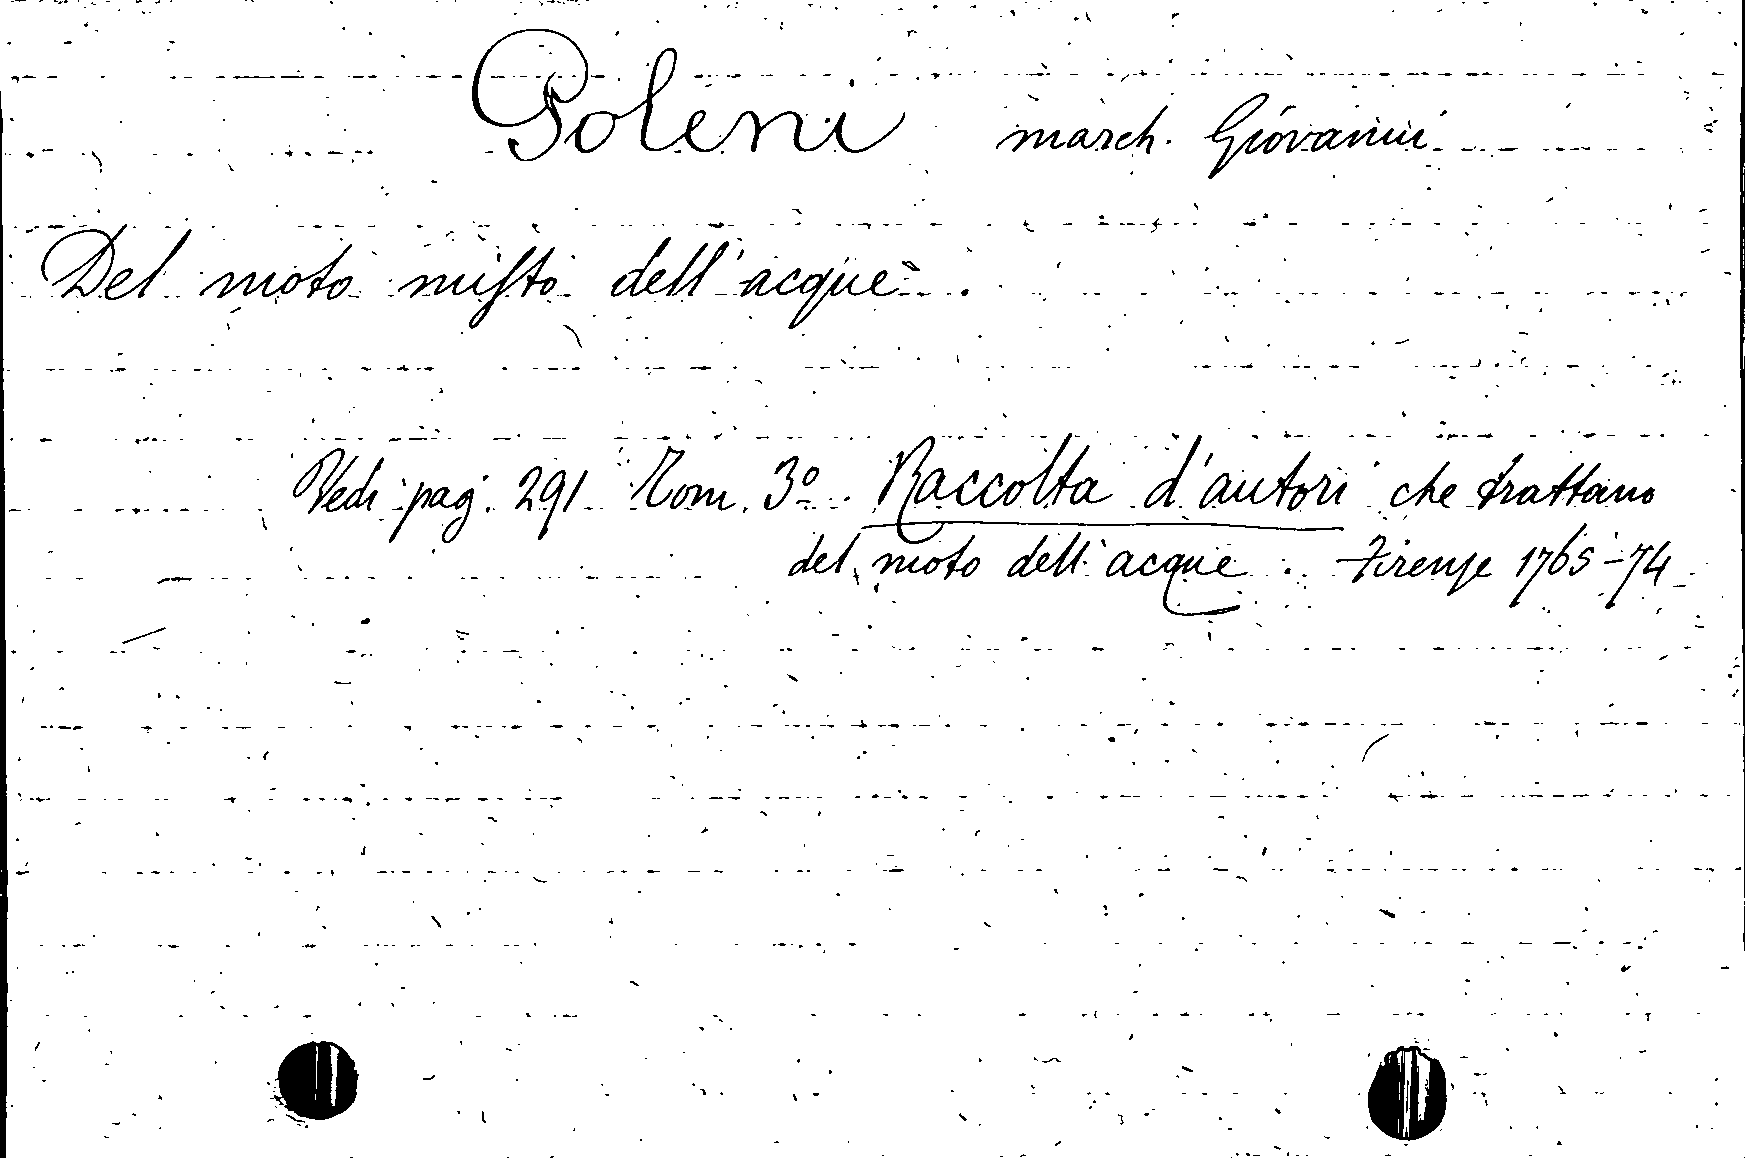 Poleni march. Giovanni
Del moto misto dell'acque.
Vedi pag. 291 Tom. 3º. Raccolta d'autori che trattano
del moto dell'acque. Firenze 1765-74